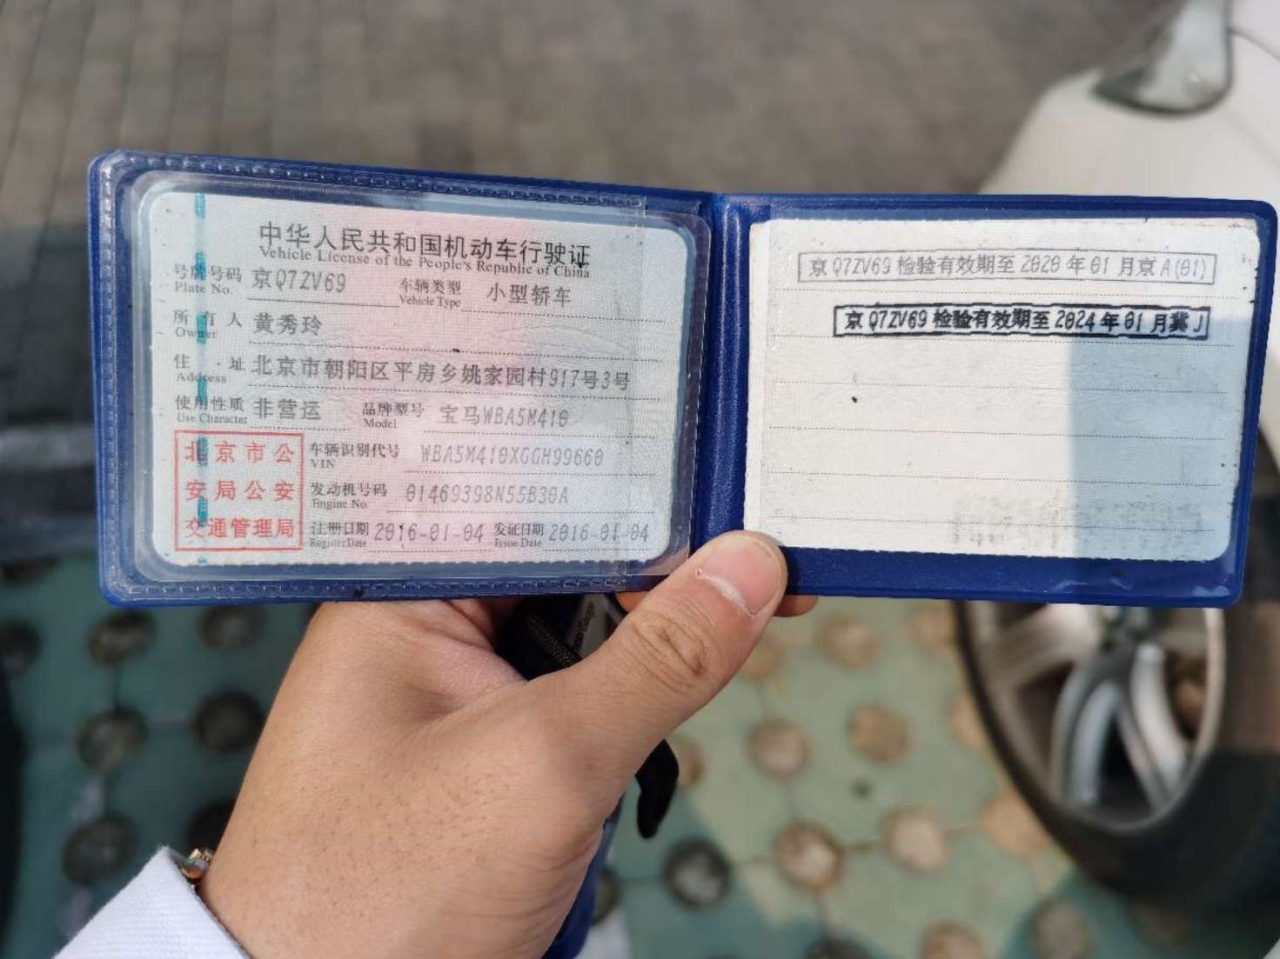 中华人民共和国机动车行驶证
Vehicle License of the People's Republic of China
号牌号码 京Q7ZV69 车辆类型 小型轿车
Plate No. Vehicle Type
所有人 黄秀玲
Owner
住址 北京市朝阳区平房乡姚家园村917号3号
Address
使用性质 非营运 品牌型号 宝马WBA5M410
Use Character Model
北京市公安局公安交通管理局
车辆识别代号 WBA5M410XGGH99660
VIN
发动机号码 01469398N55B30A
Engine No.
注册日期 2016-01-04 发证日期 2016-01-04
Register Date Issue Date
京Q7ZV69 检验有效期至 2020 年 01 月京A(01)
京Q7ZV69 检验有效期至 2024 年 01 月冀J